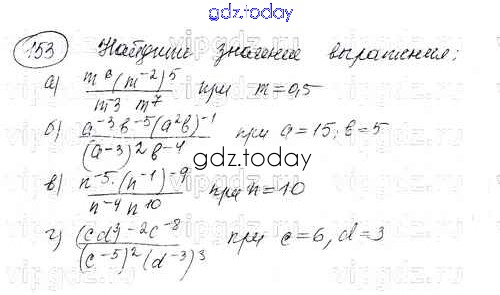 gdz.today
153 Найдите значение выражения:
а) m⁶(m⁻²)⁵ / m⁻³ m⁷ при m=0,5
б) a⁻³b⁻⁵(a²b)⁻¹ / (a⁻³)²b⁻⁴ при a=15; b=5
gdz.today
в) n⁻⁵·(n⁻¹)⁻⁹ / n⁻⁴n¹⁰ при n=10
г) (cd⁴)⁻²c⁻⁸ / (c⁻⁵)²(d⁻³)³ при c=6, d=3
gdz.today